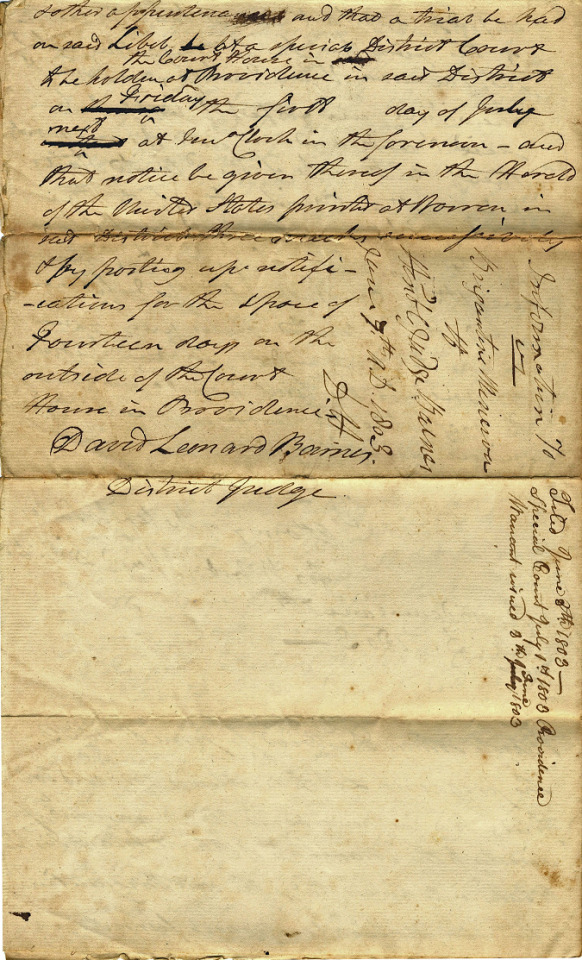 & other appurtenances and that a trial be had
on said Libel be at a special District Court
the Court House in
to be holden at Providence in said District
Friday
on the first day of July
next
at Ten o'Clock in the forenoon - and
that notice be given thereof in the Herald
of the United States printed at Warren in
said District three weeks successively
& by posting up notifi-
-cations for the space of
Fourteen days on the
outside of the Court
House in Providence.
David Leonard Barnes.
District Judge
Information &c
vs
Brigantine Minerva
Hon'd Judge Barnes
June 7th AD 1803
Filed June 8th 1803 -
Special Court July 1st 1803 Providence
Warrant issued 8th June
July 1803